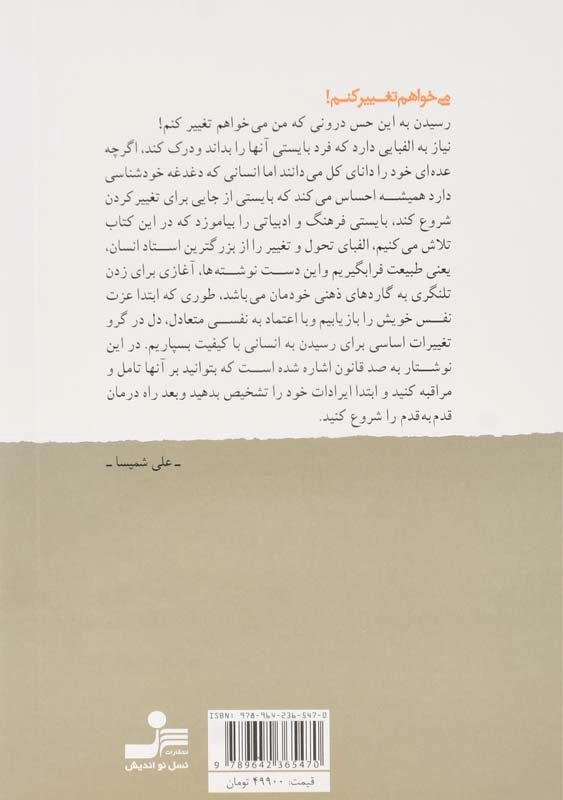 می‌خواهم تغییر کنم!
رسیدن به این حس درونی که من می‌خواهم تغییر کنم!
نیاز به الفبایی دارد که فرد بایستی آنها را بداند ودرک کند، اگرچه
عده‌ای خود را دانای کل می‌دانند اما انسانی که دغدغه خودشناسی
دارد همیشه احساس می‌کند که بایستی از جایی برای تغییر کردن
شروع کند، بایستی فرهنگ و ادبیاتی را بیاموزد که در این کتاب
تلاش می‌کنیم، الفبای تحول و تغییر را از بزرگترین استاد انسان،
یعنی طبیعت فرابگیریم واین دست نوشته‌ها، آغازی برای زدن
تلنگری به گاردهای ذهنی خودمان می‌باشد، طوری که ابتدا عزت
نفس خویش را بازیابیم وبا اعتماد به نفسی متعادل، دل در گرو
تغییرات اساسی برای رسیدن به انسانی با کیفیت بسپاریم. در این
نوشتار به صد قانون اشاره شده است که بتوانید بر آنها تامل و
مراقبه کنید و ابتدا ایرادات خود را تشخیص بدهید وبعد راه درمان
قدم‌به‌قدم را شروع کنید.
ـ علی شمیسا ـ
ISBN: 978-964-236-547-0
9 789642 365470
قیمت: ۴۹۹۰۰ تومان
انتشارات
نسل نو اندیش